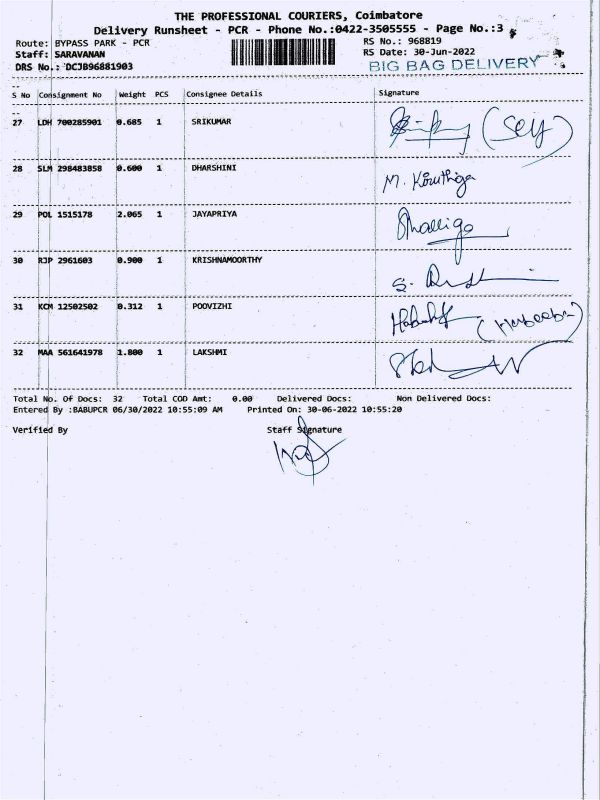 THE PROFESSIONAL COURIERS, Coimbatore
Delivery Runsheet - PCR - Phone No.:0422-3505555 - Page No.:3
Route: BYPASS PARK - PCR RS No.: 968819
Staff: SARAVANAN RS Date: 30-Jun-2022
DRS No.: DCJB96881903 BIG BAG DELIVERY
S No Consignment No Weight PCS Consignee Details Signature
27 LDH 700285901 0.685 1 SRIKUMAR (Self)
28 SLM 298483858 0.600 1 DHARSHINI M. Kiruthiga
29 POL 1515178 2.065 1 JAYAPRIYA
30 RJP 2961603 0.900 1 KRISHNAMOORTHY
31 KCM 12502502 0.312 1 POOVIZHI
32 MAA 561641978 1.800 1 LAKSHMI
Total No. Of Docs: 32 Total COD Amt: 0.00 Delivered Docs: Non Delivered Docs:
Entered By :BABUPCR 06/30/2022 10:55:09 AM Printed On: 30-06-2022 10:55:20
Verified By Staff Signature